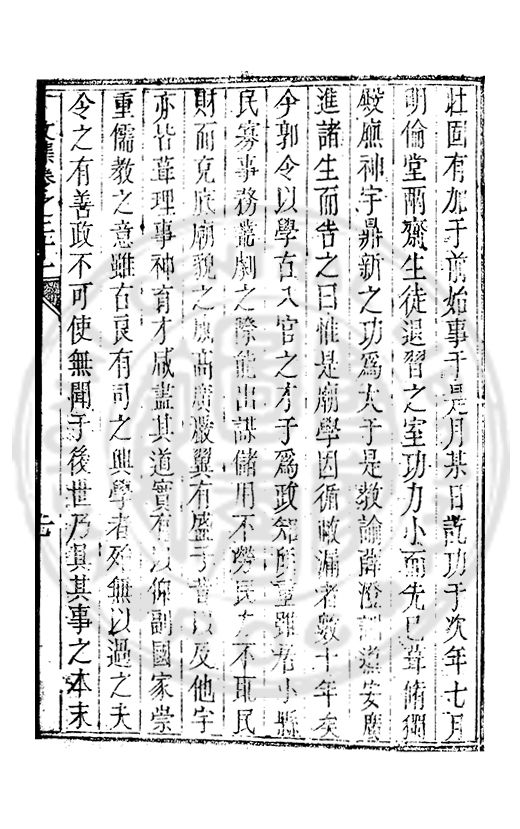 壯固有加于前始事于是月某日訖功于次年七月
明倫堂兩齋生徒退習之室功力小而先已葺脩獨
殿廡神宇鼎新之功爲大于是敎諭薛澄訓導安慶
進諸生而告之曰惟是廟學因循敝漏者數十年矣
今郭令以學古入官之才于爲政知所重雖君小縣
民寡事務叢劇之際能出謀儲用不勞民力不取民
財而克底廟貌之風高廣嚴翼有盛于昔以及他宇
亦皆葺理事神育才咸盡其道實有以仰副國家崇
重儒教之意雖古良有司之興學者殆無以過之夫
令之有善政不可使無聞于後世乃具其事之本末
文集卷之二十